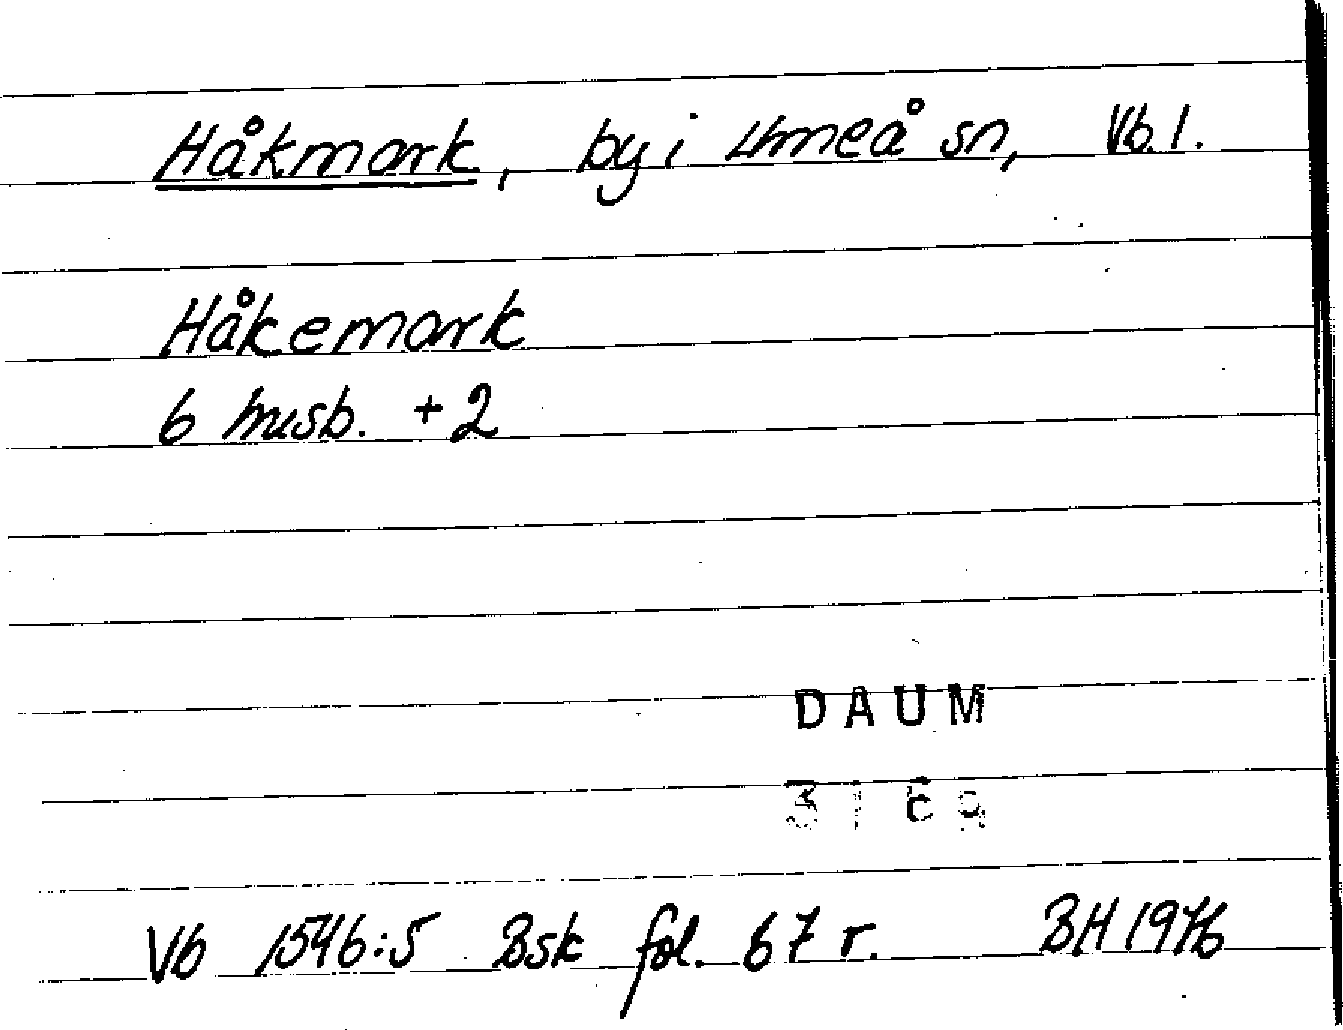 Håkmark, by i Umeå sn, Vb. l.
Håkemark
6 husb. + 2
DAUM
3169
Vb 1546:5 Bsk fol. 67 r. BH 1976